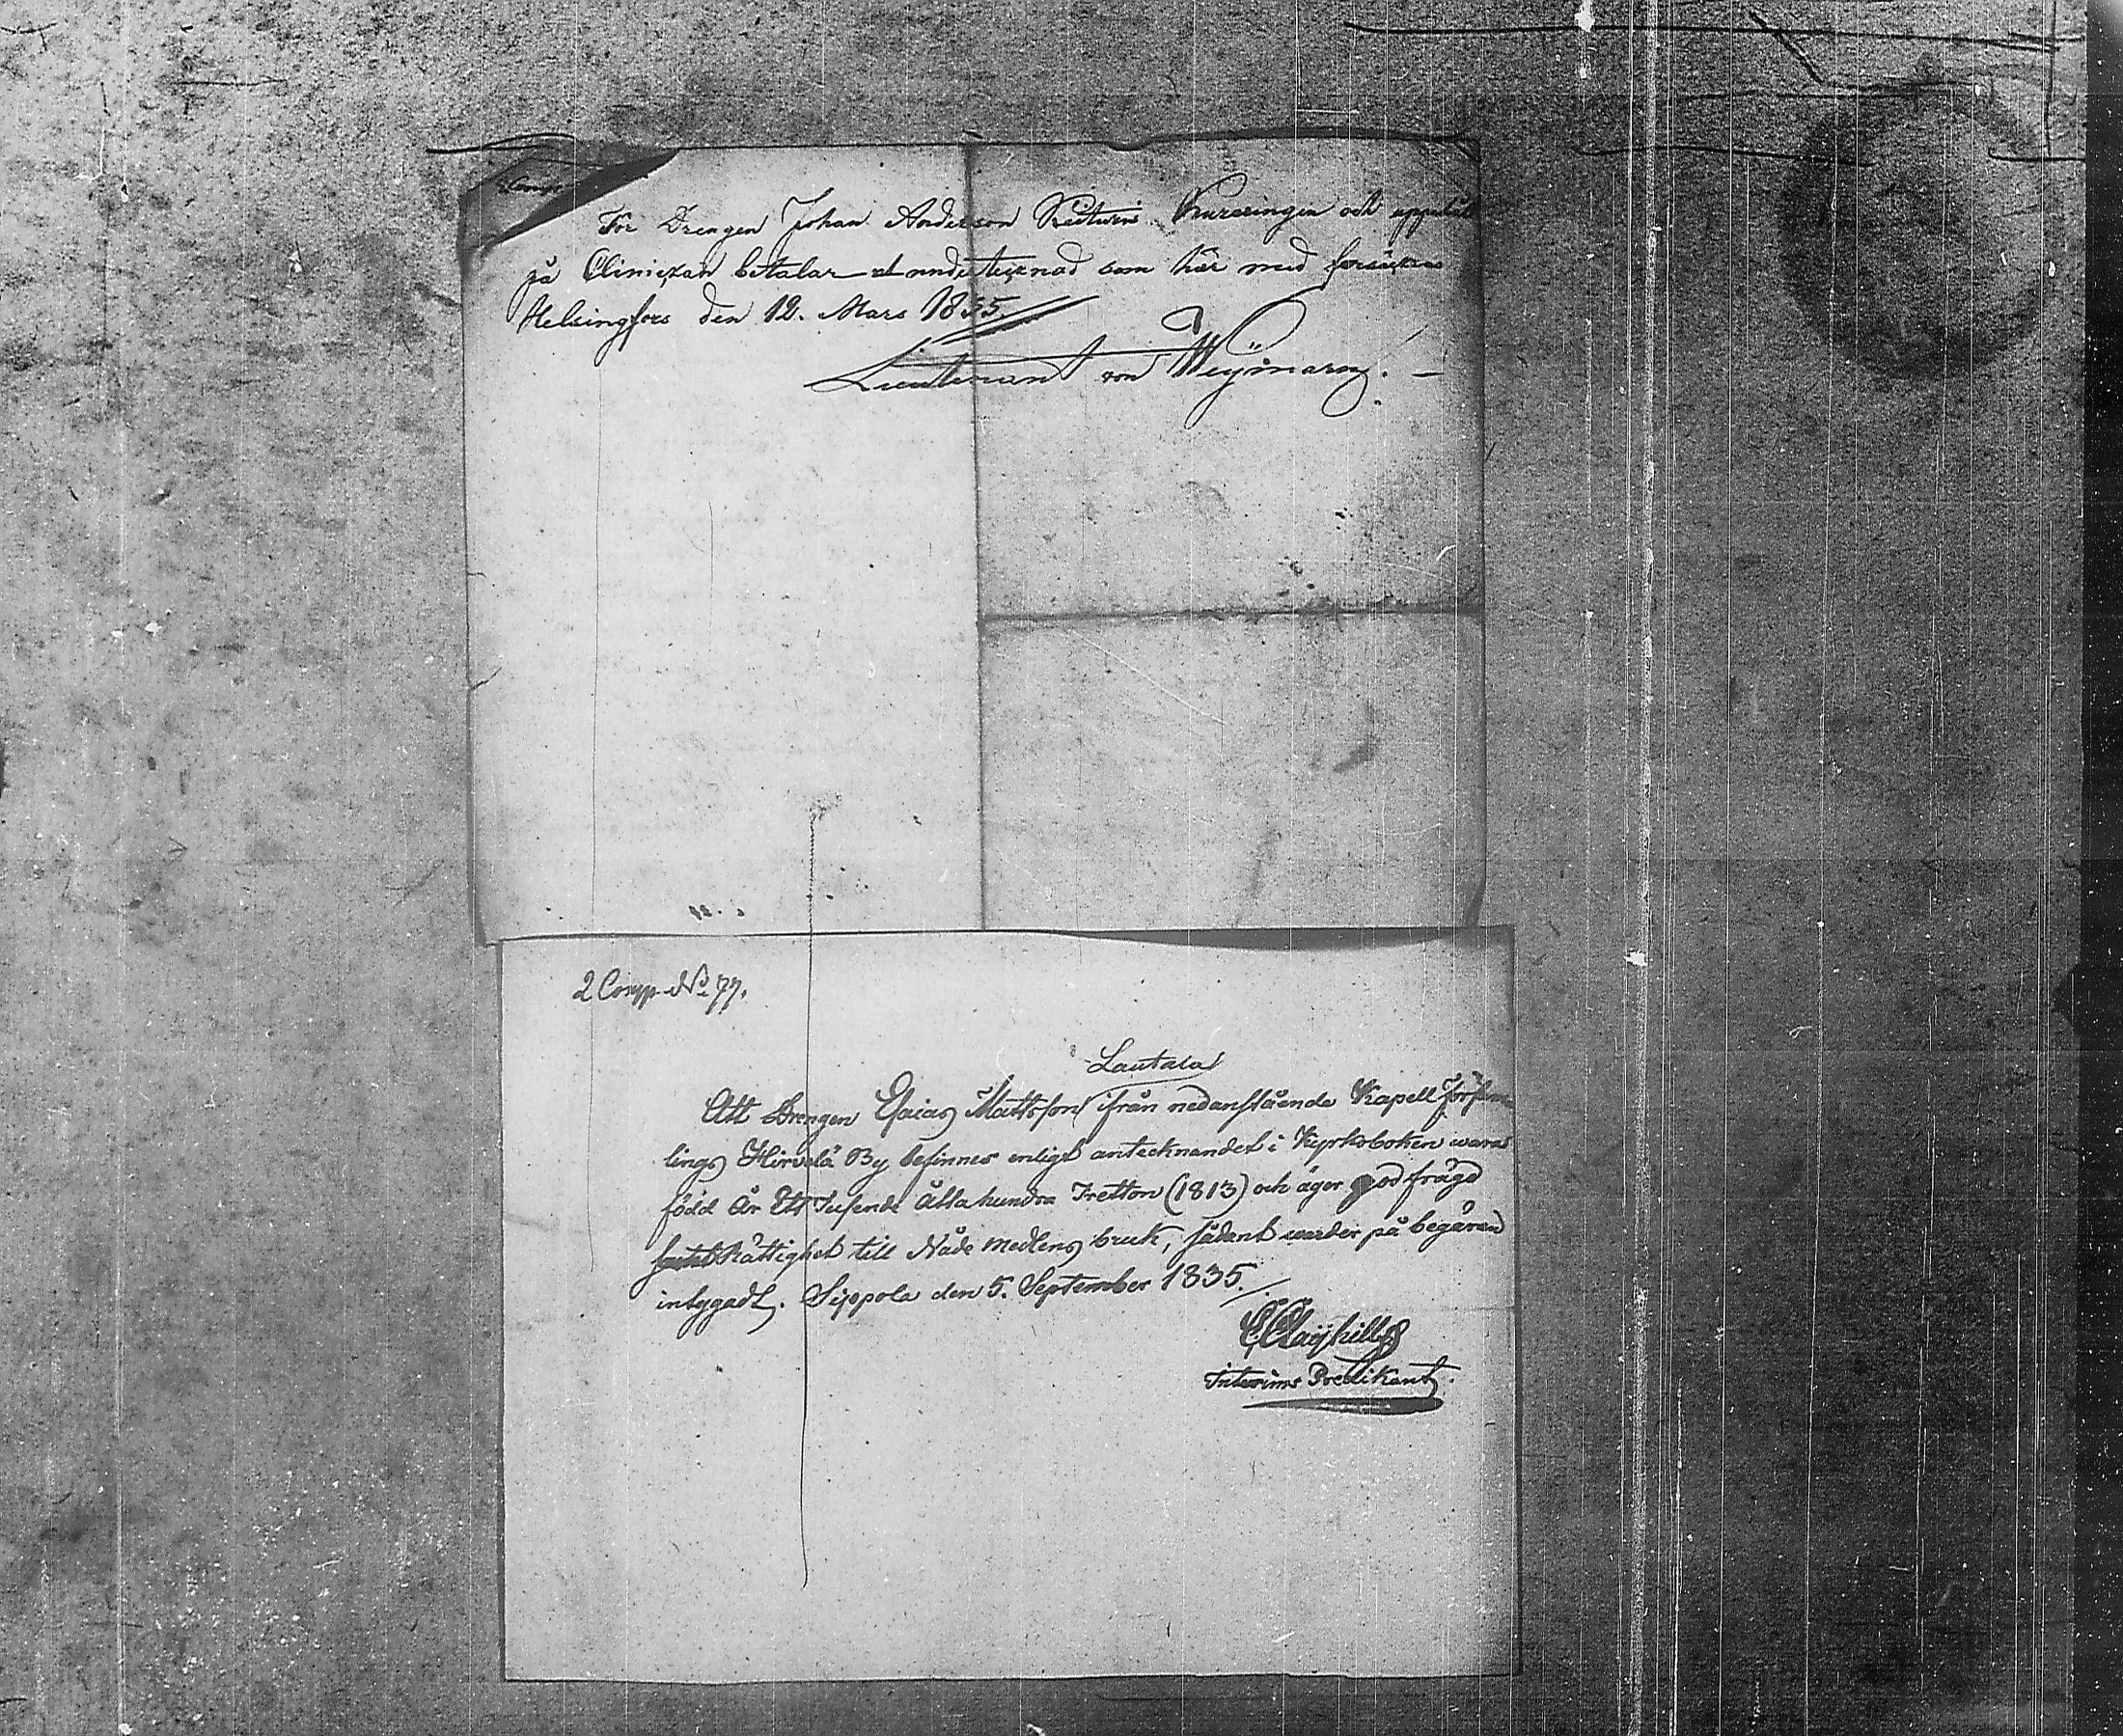 Comp
För Drengen Johan Anderson Kureringen och
på Clinickan betalar undertecknad som här med försäkras
Helsingfors den 12. Mars 1835
Lieutenant von Weÿmarn.
2 Comp. No 77.
Lautala
Att Drengen Esaias Mattsson ifrån nedanstående Kapell Försam
lings Hirvelä By befinnes enligt antecknandet i Kyrkoboken wara
född År Ett Tusende Åtta hundra Tretton (1813) och äger god frägd
Rättighet till Nåde medlens bruk, sådant warder på begäran
intygadt. Sippola den 5. September 1835.
C. Claÿhills
Interims Predikant.